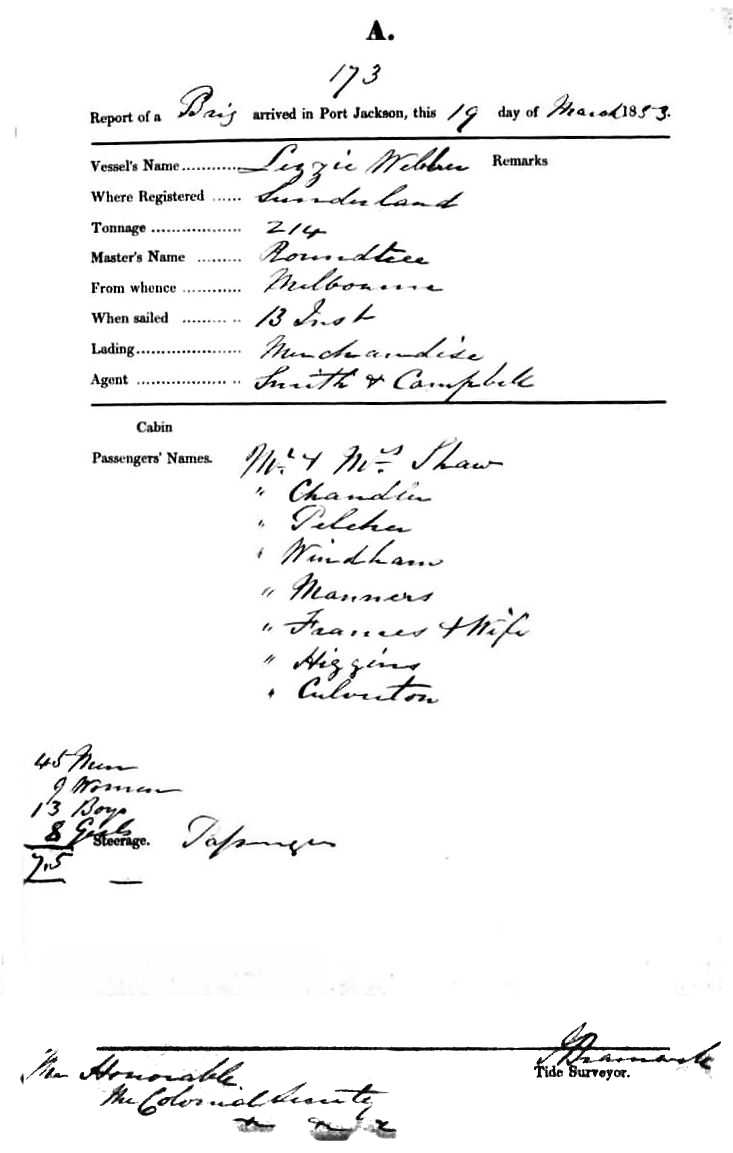 A.
173
Report of a Brig arrived in Port Jackson, this 19 day of March 1853.
Vessel's Name........... Lizzie Webber Remarks
Where Registered ...... Sunderland
Tonnage .................. 214
Master's Name ......... Roundtree
From whence ............ Melbourne
When sailed ........... 13 Inst
Lading..................... Merchandise
Agent ..................... Smith & Campbell
Cabin
Passengers' Names. Mr. & Mrs. Shaw
" Chandler
" Pilcher
" Windham
" Manners
" Frances & Wife
" Higgins
" Culverton
45 Men
9 Women
13 Boys
8 Girls
Steerage. Passengers
75
The Honorable
the Colonial Secretary
Tide Surveyor.